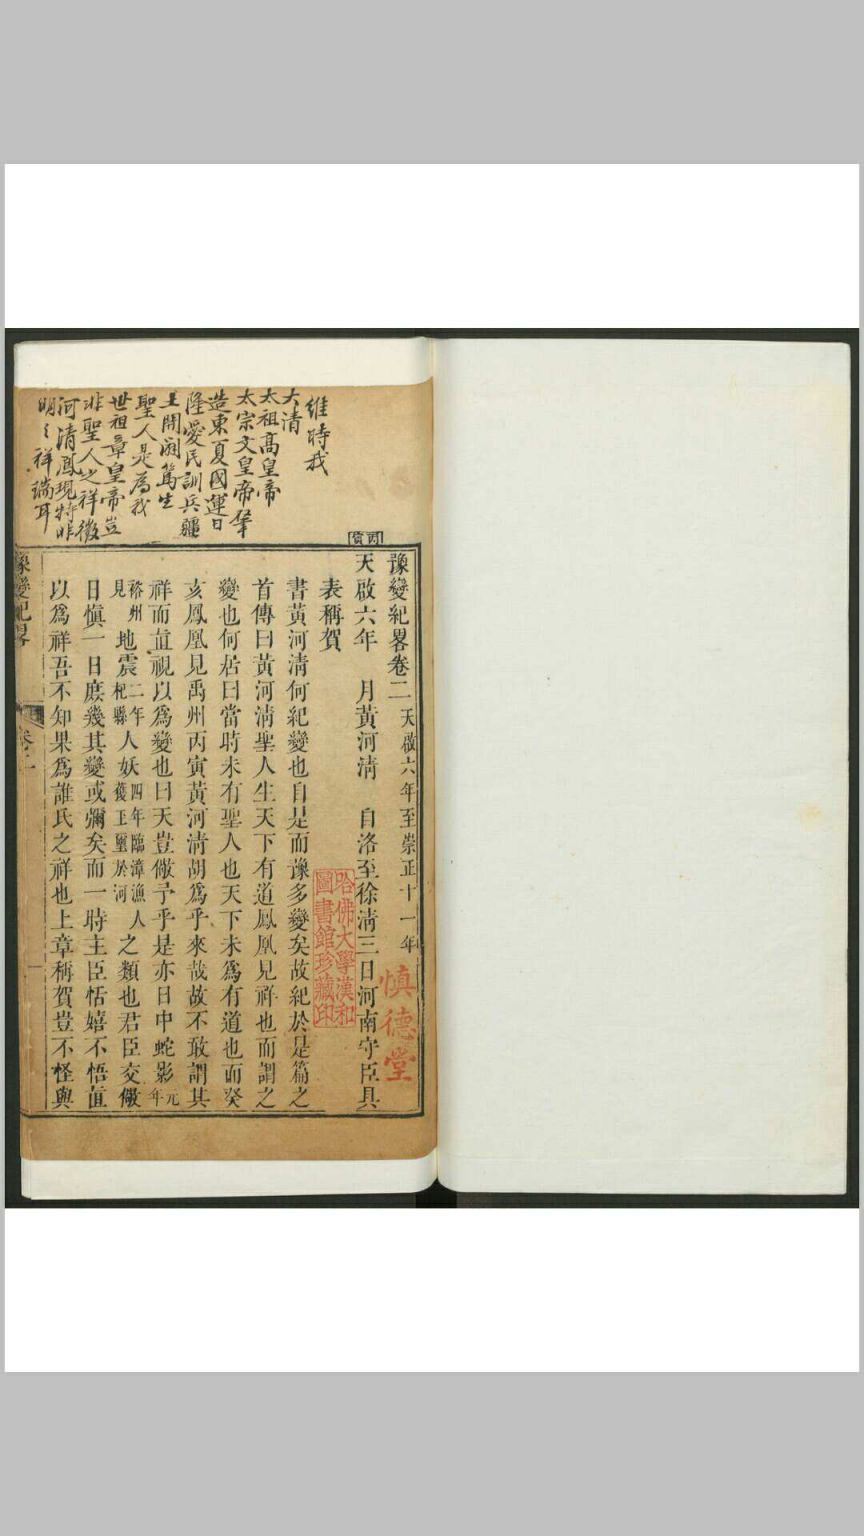 維時我
大清
太祖高皇帝
太宗文皇帝肇
造東夏國運日
隆愛民訓兵疆
土開闢篤生
聖人是為我
世祖章皇帝豈
非聖人之祥徵
河清鳳現特非
明之祥瑞耳
丙寅
豫變紀畧卷二 天啟六年至崇正十一年
天啟六年 月黃河清 自洛至徐清三日河南守臣具
表稱賀
書黃河清何紀變也自是而豫多變矣故紀於是篇之
首傳曰黃河清聖人生天下有道鳳凰見祥也而謂之
變也何居曰當時未有聖人也天下未為有道也而癸
亥鳳凰見禹州丙寅黃河清胡為乎來哉故不敢謂其
祥而直視以為變也曰天豈儆予乎是亦日中蛇影元年
裕州見地震二年杞縣人妖四年臨漳漁人獲玉璽於河之類也君臣交儆
日慎一日庶幾其變或彌矣而一時主臣恬嬉不悟直
以為祥吾不知果為誰氏之祥也上章稱賀豈不怪與
豫變紀畧
卷二
一
慎德堂
哈佛大學漢和
圖書館珍藏印